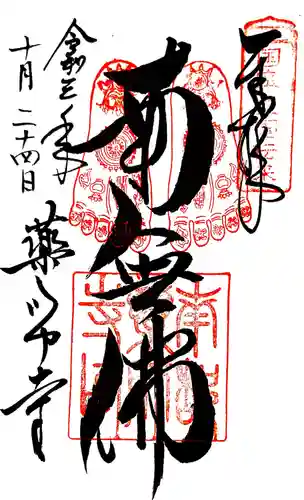 奉拝
南無佛
令和三年
十月二十四日
薬師寺